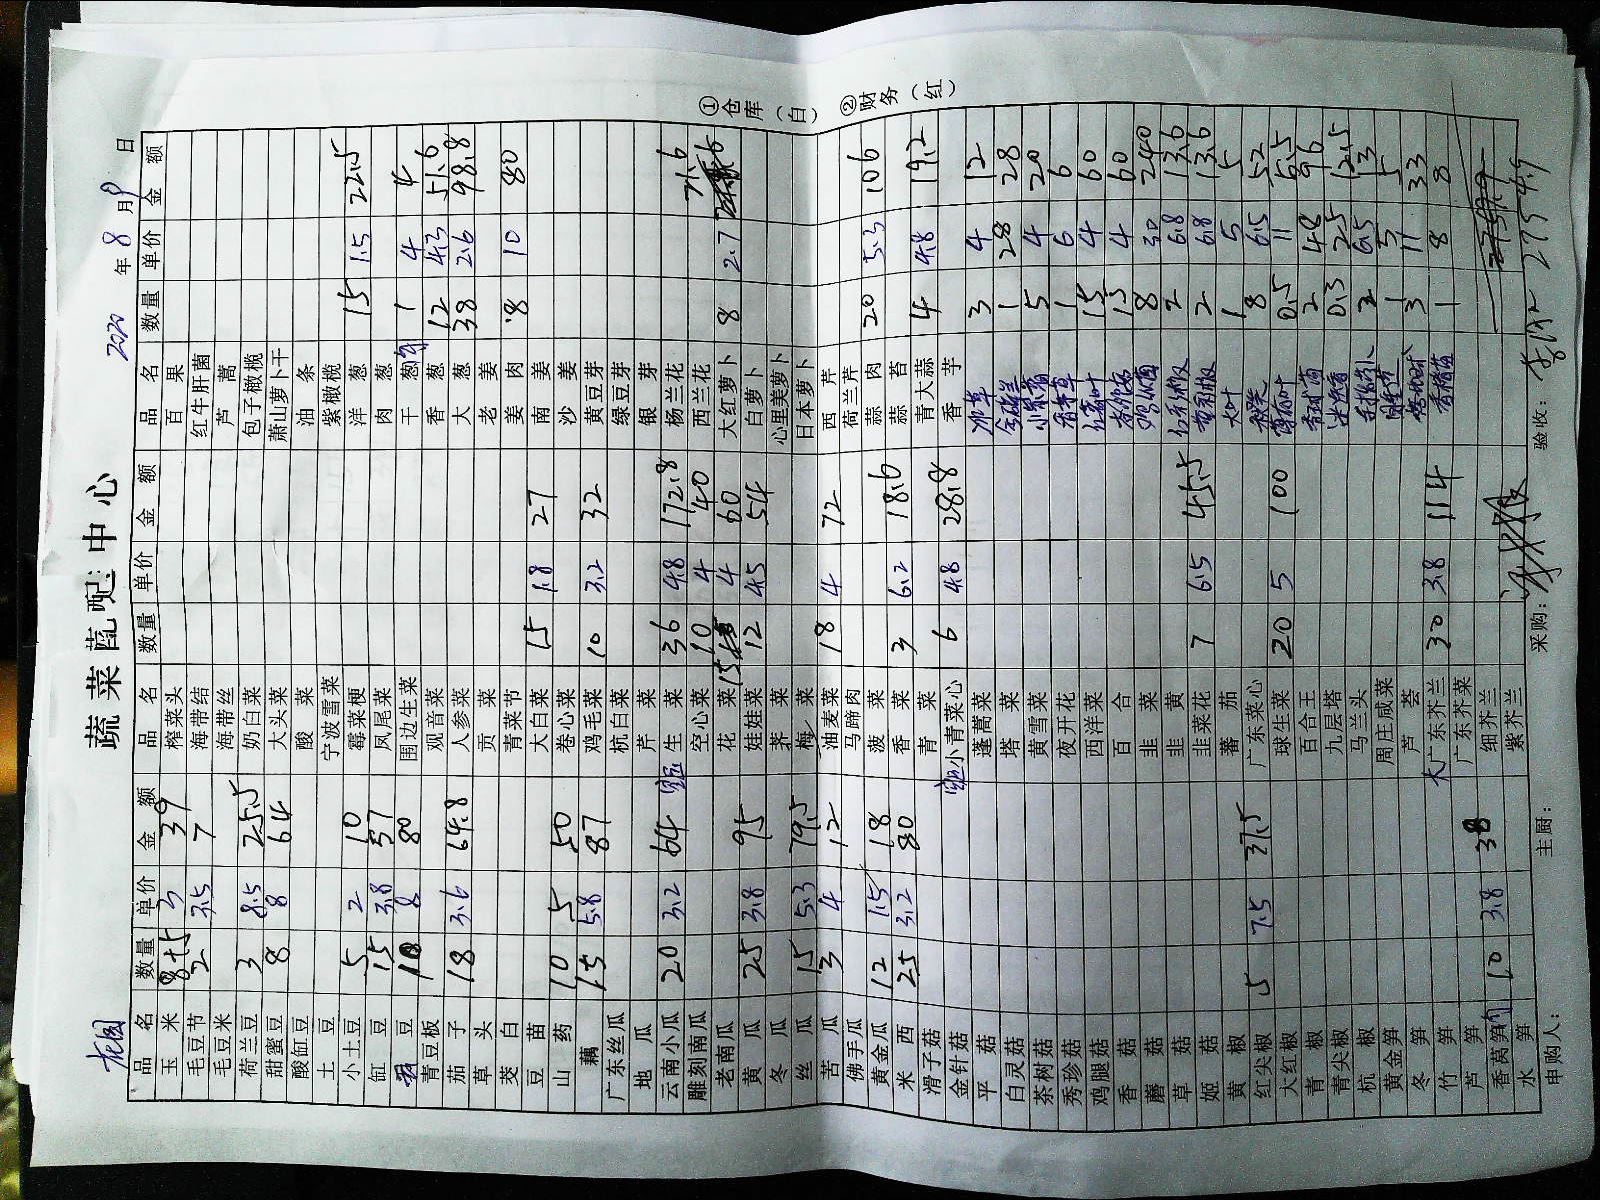 蔬菜配中心
花园 2020年8月9日
品名 数量 单价 金额 品名 数量 单价 金额 品名 数量 单价 金额
玉米 8+5 3 39 榨菜头 百果
毛豆节 2 3.5 7 海带结 红牛肝菌
毛豆米 海带丝 芦蒿
荷兰豆 3 8.5 25.5 奶白菜 包子橄榄
甜蜜豆 8 8 64 大头菜 萧山萝卜干
酸缸豆 酸菜 油条
土豆 宁波雪菜 紫橄榄
小土豆 5 2 10 霉菜梗 洋葱 15 1.5 22.5
缸豆 15 3.8 57 凤尾菜 肉葱
豆 10 8 80 围边生菜 干葱 1 4 4
青豆板 观音菜 香葱 12 4.3 51.6
茄子 18 3.6 64.8 人参菜 大葱 38 2.6 98.8
草头 贡菜 老姜
茭白 青菜节 姜肉 8 10 80
豆苗 大白菜 15 1.8 27 南姜
山药 10 5 50 卷心菜 沙姜
藕 15 5.8 87 鸡毛菜 10 3.2 32 黄豆芽
广东丝瓜 杭白菜 绿豆芽
地瓜 芹菜 银芽
云南小瓜 20 3.2 64 生菜 36 4.8 172.8 杨兰花
雕刻南瓜 空心菜 10 4 40 西兰花
老南瓜 花菜 15 4 60 大红萝卜 8 2.7 21.6
黄瓜 25 3.8 95 娃娃菜 12 4.5 54 白萝卜
冬瓜 荠菜 心里美萝卜
丝瓜 15 5.3 79.5 梅菜 日本萝卜
苦瓜 3 4 12 油麦菜 18 4 72 西芹
佛手瓜 马蹄肉 荷兰芹
黄金瓜 12 1.5 18 菠菜 蒜肉 20 5.3 106
米西 25 3.2 80 香菜 3 6.2 18.6 蒜苔
滑子菇 青菜 青大蒜 4 4.8 19.2
金针菇 小青菜心 6 4.8 28.8 香芋
平菇 蓬蒿菜 冰草 3 4 12
白灵菇 塔菜 1 28 28
茶树菇 黄雪菜 5 4 20
秀珍菇 夜开花 1 6 6
鸡腿菇 西洋菜 15 4 60
香菇 百合 15 4 60
蘑菇 韭菜 8 30 240
草菇 韭黄 2 6.8 13.6
姬菇 韭菜花 7 6.5 45.5 2 6.8 13.6
黄椒 蕃茄 大叶 1 5 5
红尖椒 5 7.5 37.5 广东菜心 8 6.5 52
大红椒 球生菜 20 5 100 薄荷叶 0.5 11 5.5
青椒 百合王 2 48 96
青尖椒 九层塔 0.5 25 12.5
杭椒 马兰头 2 6.5 13
黄金笋 周庄咸菜 1 5 5
冬笋 芦荟 3 11 33
竹笋 大广东芥兰 30 3.8 114 1 8 8
芦笋 广东芥菜
香莴笋 10 3.8 38 细芥兰
水笋 紫芥兰
申购人: 主厨: 采购: 验收: 2754.9
①仓库(白) ②财务(红)